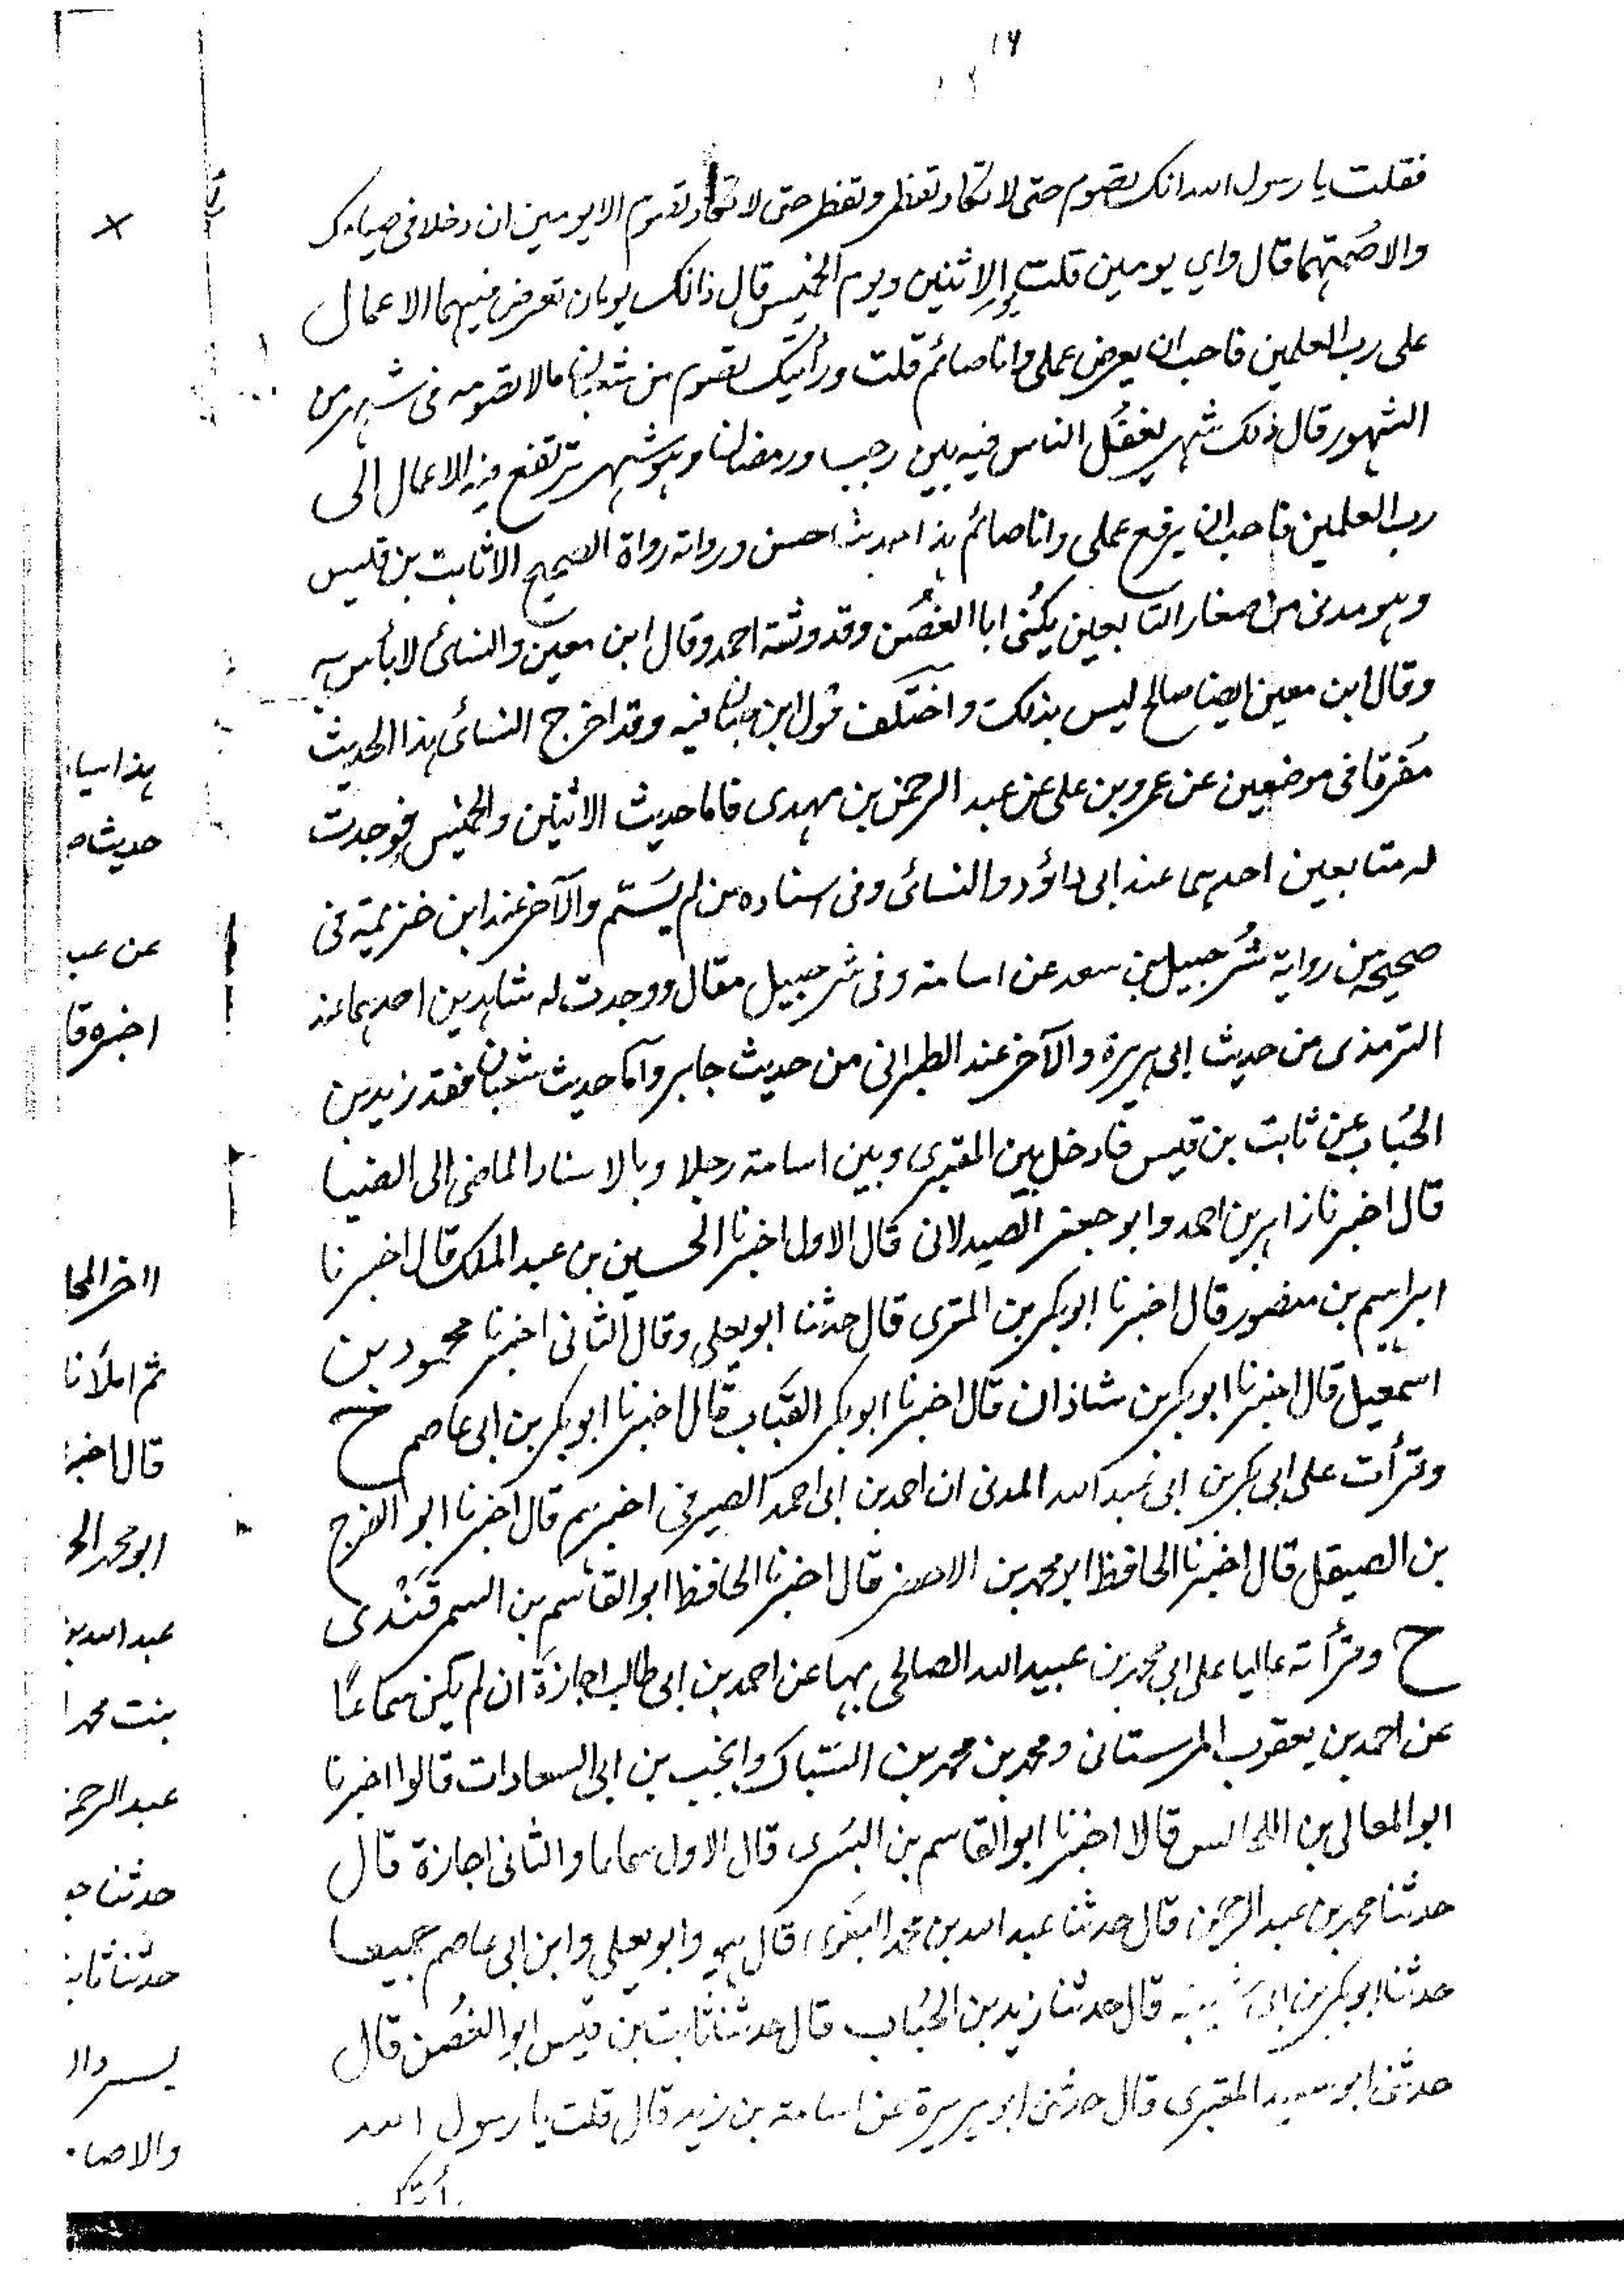 ١٦
فقلت يا رسول الله انك تصوم حتى لا تكاد تفطر وتفطر حتى لا تكاد تصوم الا يومين ان دخلا فى صيامك
والا صُمتهما قال واي يومين قلت يوم الاثنين ويوم الخميس قال ذانك يومان تعرض فيهما الاعمال
على رب العلمين فاحب ان يعرض عملى وانا صائم قلت ورأيتك تصوم من شعبان ما لا تصومه فى شهر من
الشهور قال ذلك شهر يغفُل الناس فيه بين رجب ورمضان وهو شهر ترتفع فيه الاعمال الى
رب العلمين فاحب ان يرفع عملى وانا صائم هذا حديث حسن ورواته رواة الصحيح الا ثابت بن قيس
وهو مدنى من صغار التابعين يكنى ابا الغصُن وقد وثقه احمد وقال ابن معين والنسائى لا بأس به
وقال ابن معين ايضا صالح ليس بذلك واختلف قول ابن حبان فيه وقد اخرج النسائى هذا الحديث
مفرقا فى موضعين عن عمرو بن على عن عبد الرحمن بن مهدى فاما حديث الاثنين والخميس فوجدت
له متابعين احدهما عند ابى داؤد والنسائى وفى اسناده من لم يسَمّ والآخر عند ابن خزيمة فى
صحيحه من رواية شُرحبيل بن سعد عن اسامة وفى شرحبيل مقال ووجدت له شاهدين احدهما عند
الترمذى من حديث ابى هريرة والآخر عند الطبرانى من حديث جابر واما حديث شعبان فقد زيد بن
الحُباب عن ثابت بن قيس فادخل بين المقبرى وبين اسامة رجلا وبالاسناد الماضى الى الضيا
قال اخبرنا زاهر بن احمد وابو جعفر الصيدلانى قال الاول اخبرنا الحسين بن عبد الملك قال اخبرنا
ابراهيم بن منصور قال اخبرنا ابو بكر بن المقرى قال حدثنا ابو يعلى وقال الثانى اخبرنا محمود بن
اسمعيل قال اخبرنا ابو بكر بن شاذان قال اخبرنا ابو بكر القباب قال اخبرنا ابو بكر بن ابى عاصم ح
وقرأت على ابى بكر بن ابى عبد الله المدنى ان احمد بن ابى احمد الصيرفى اخبرهم قال اخبرنا ابو الفرج
بن الصيقل قال اخبرنا الحافظ ابو محمد بن الاخضر قال اخبرنا الحافظ ابو القاسم بن السمرقَنْدى
ح وقرأته عاليا على ابى محمد بن عبيد الله الصالحى بها عن احمد بن ابى طالب اجازةً ان لم يكن سماعًا
عن احمد بن يعقوب المرستانى ومحمد بن محمد بن السباك وانجب بن ابى السعادات قالوا اخبرنا
ابو المعالى بن اللحاس قالا اخبرنا ابو القاسم بن البسرى قال الاول سماعا والثانى اجازة قال
حدثنا محمد بن عبد الرحمن قال حدثنا عبد الله بن محمد البغوى قال هو وابو يعلى وابن ابى عاصم جميعا
حدثنا ابو بكر بن ابى شيبة قال حدثنا زيد بن الحُباب قال حدثنا ثابت بن قيس ابو الغُصُن قال
حدثنى ابو سعيد المقبرى قال حدثنى ابو هريرة عن اسامة بن زيد قال قلت يا رسول الله
حديث
عن عب
اخبره قا
ثم املأنا
قال اخبر
ابو محمد الح
بنت محمد
عبد الرحم
حدثنا
والا صا